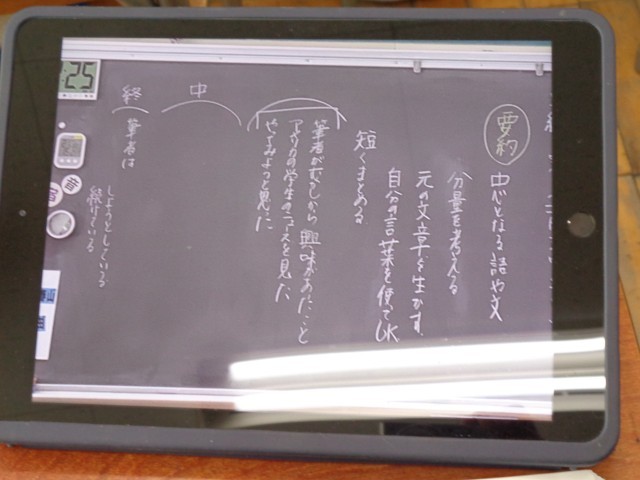 要約
中心となる語や文
分量を考える
元の文章を生かす
自分の言葉を使ってOK
短くまとめる
筆者がむかしから興味があったこと
アメリカの学生のニュースを見た
やってみようと思った
中
終
筆者は
しようとしている
続けている
25